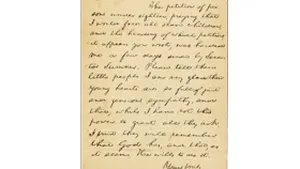 The petition of per
sons under eighteen, praying that
I would free all slave children,
and the heading of which petition
it appears you wrote, was handed
me a few days since by Sena
tor Sumner. Please tell these
little people I am very glad their
young hearts are so full of just
and generous sympathy, and
that, while I have not the
power to grant all they ask,
I trust they will remember
that God has, and that, as
it seems, He wills to do it
Yours truly